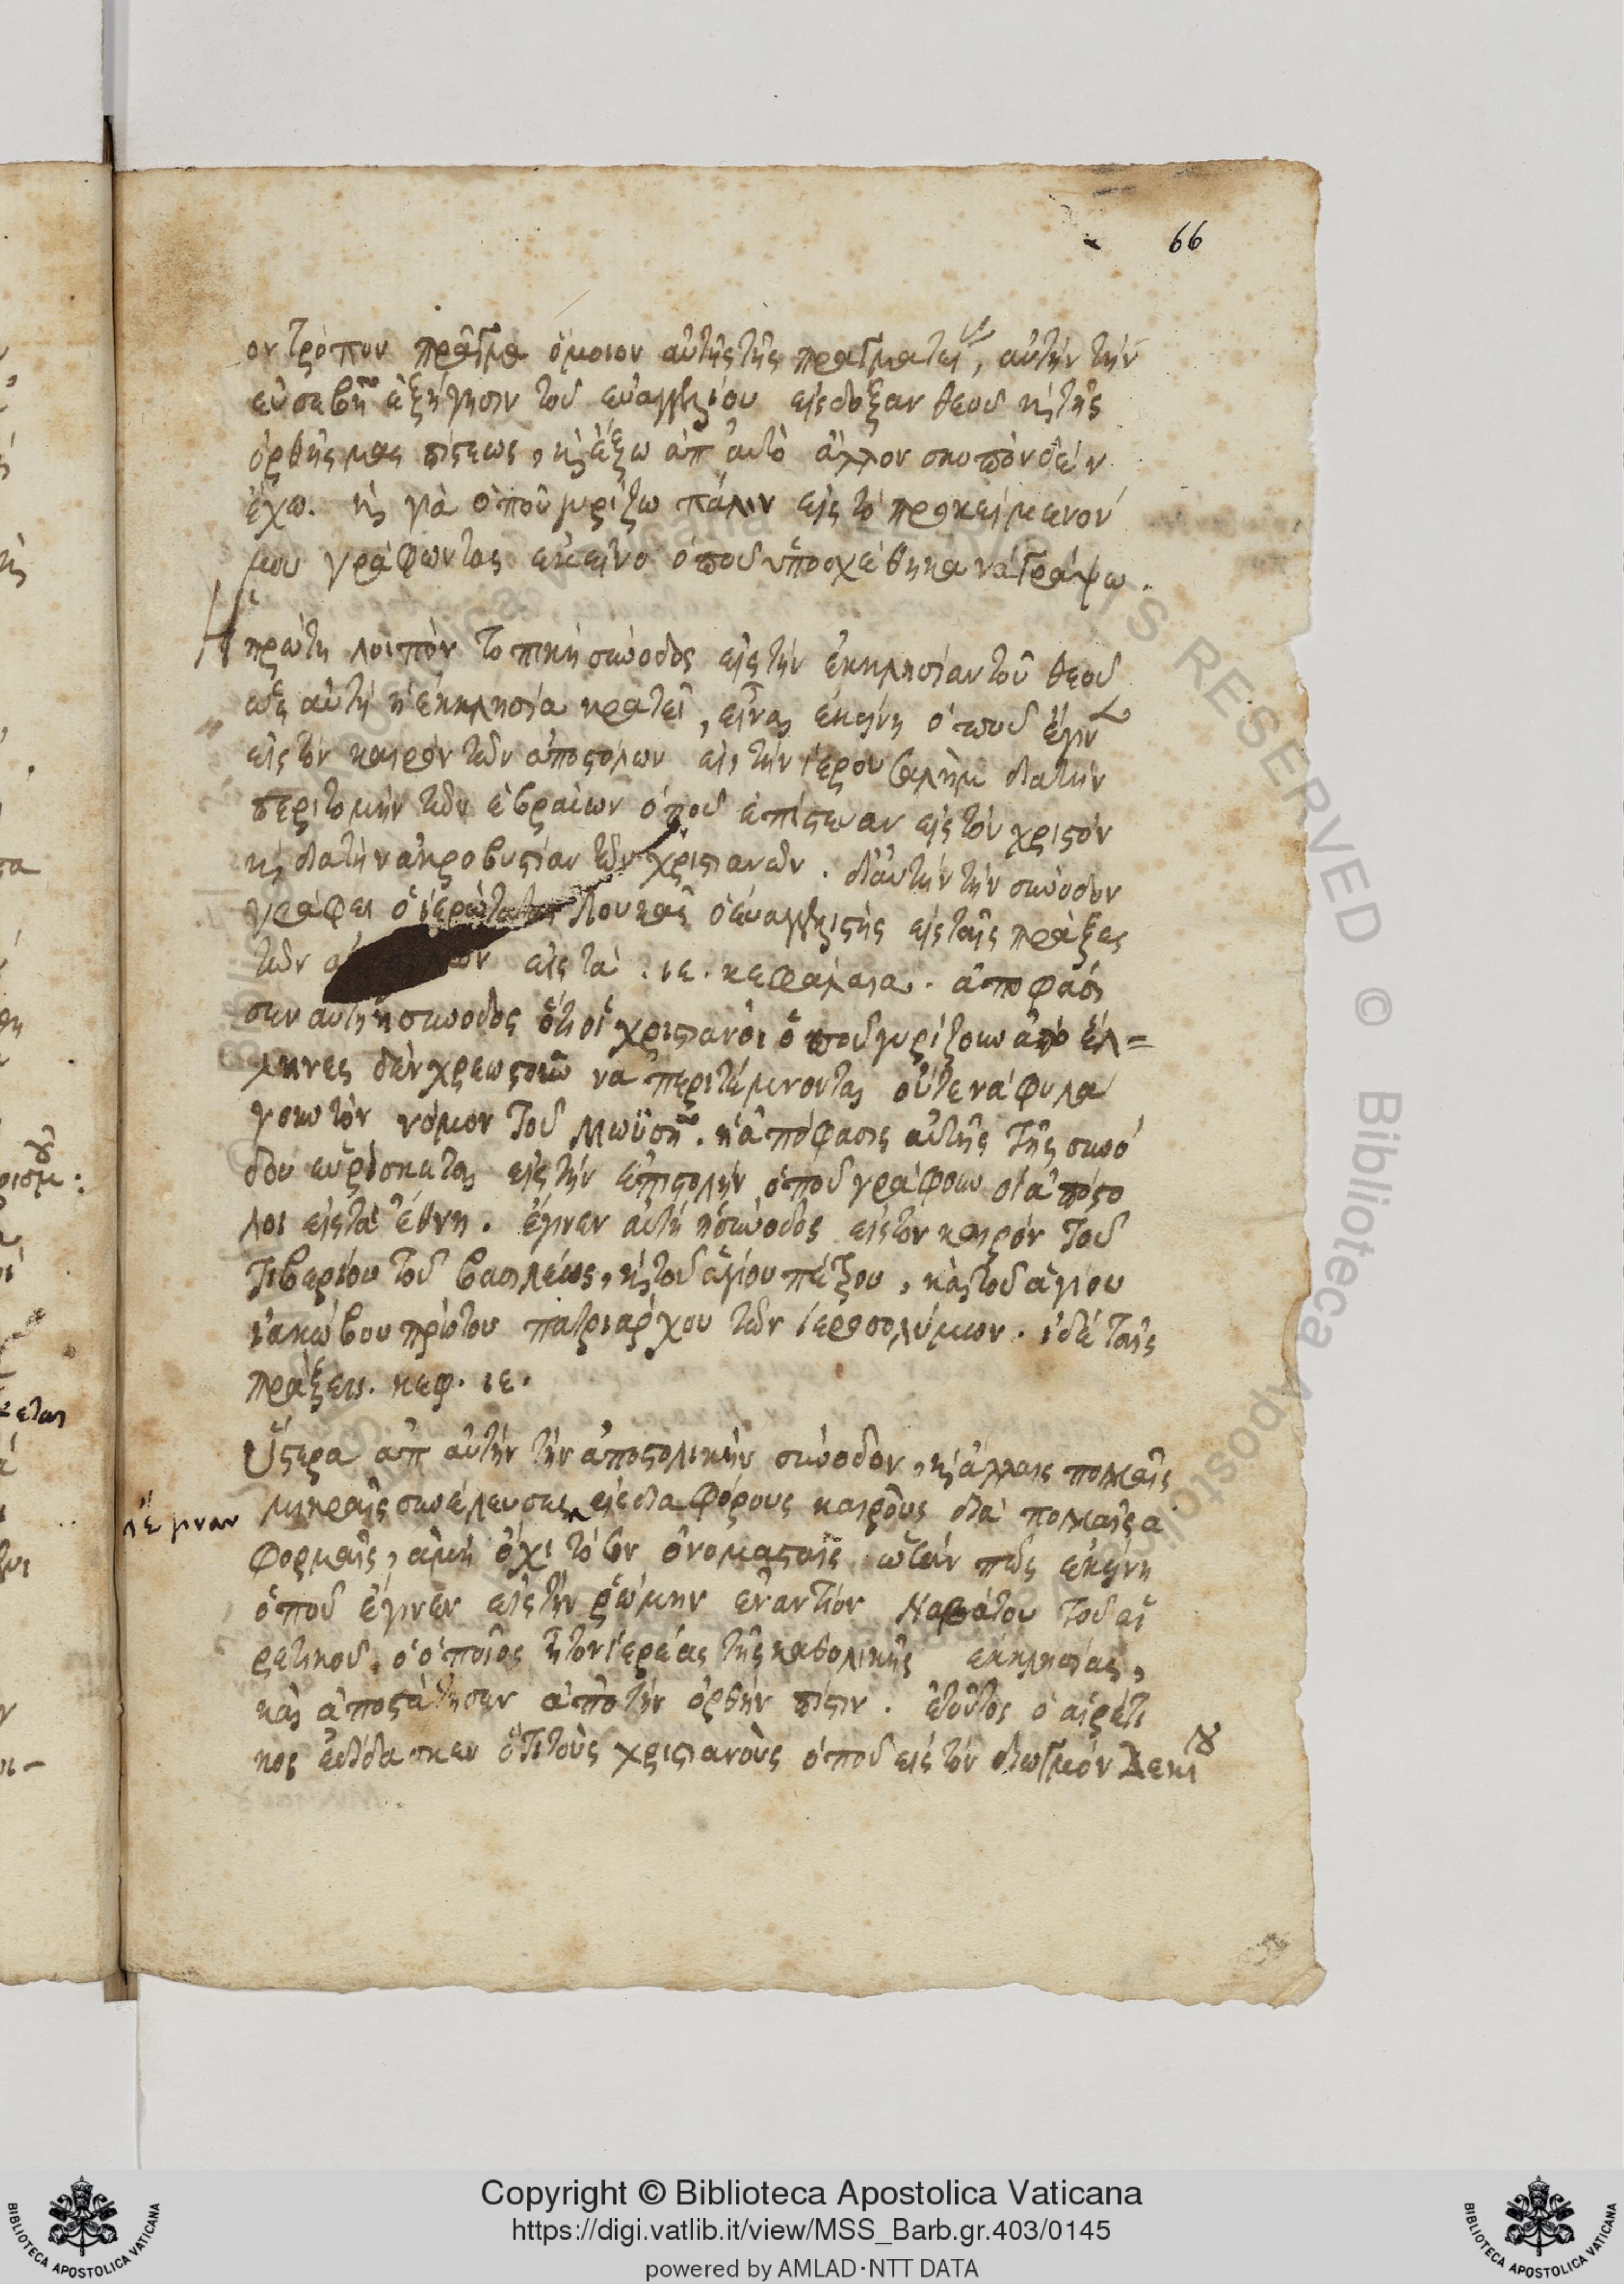 66
ον τρόπον πρᾶγμα ὅμοιον αὐτῆς τῆς πραγματείας, αὐτὴν τὴν
εὐσεβῆ ἐξήγησιν τοῦ εὐαγγελίου εἰς δόξαν θεοῦ κὶ τῆς
ὀρθῆς μας πίστεως, κὶ ἔξω ἀπ' αὐτὸ ἄλλον σκοπὸν δέν
ἔχω. κὶ γὰ ὁποῦ γυρίζω πάλιν εἰς τὸ προκείμενόν
μου γράφωντας ἐκεῖνο ὁποῦ ὑποσχέθηκα νὰ γράψω.
Ἡ πρώτη λοιπὸν τοπικὴ σύνοδος εἰς τὴν ἐκκλησίαν τοῦ θεοῦ
αὐτὴ ἡ ἐκκλησία κρατεῖ, εἶναι ἐκείνη ὁποῦ ἔγινε
εἰς τὸν καιρὸν τῶν ἀποστόλων εἰς τὴν ἱερουσαλὴμ διὰ τὴν
περιτομὴν τῶν ἑβραίων ὁποῦ ἐπίστευαν εἰς τὸν χριστόν
κὶ διὰ τὴν ἀκροβυστίαν τῶν χριστιανῶν. δι' αὐτὴν τὴν σύνοδον
γράφει ὁ ἱερώτατος Λουκᾶς ὁ εὐαγγελιστὴς εἰς ταῖς πράξες
τῶν εἰς τὰ .ιε. κεφάλαια. ἀποφάσι
σεν αὐτὴ ἡ σύνοδος ὅτι οἱ χριστιανοὶ ὁποῦ γυρίζουν ἀπὸ ἕλ=
ληνες δὲν χρεωστοῦν νὰ περιτέμνονται οὔτε νὰ φυλά
γουν τὸν νόμον τοῦ Μωϋσῆ. ἡ ἀπόφασις αὐτῆς τῆς συνό
δου εὑρίσκεται εἰς τὴν ἐπιστολὴν ὁποῦ γράφουν οἱ ἀπόστο
λοι εἰς τὰ ἔθνη. ἔγινεν αὐτὴ ἡ σύνοδος εἰς τὸν καιρὸν τοῦ
Τιβερίου τοῦ βασιλέως, κὶ τοῦ ἁγίου πέτρου, καὶ τοῦ ἁγίου
ἰακώβου πρώτου πατριάρχου τῶν ἱεροσολύμων. ἰδὲ ταῖς
πράξεις. κεφ. ιε.
Ὕστερα ἀπ' αὐτὴν τὴν ἀποστολικὴν σύνοδον, κὶ ἄλλαις πολλαῖς
ἔγιναν
μικραῖς συνέλευσες εἰς διαφόρους καιροὺς διὰ πολλαῖς ἀ
φορμαῖς, ἀμὴ ὄχι τόσον ὀνομασταῖς ὡσὰν πῶς ἐκείνη
ὁποῦ ἔγινεν εἰς τὴν ῥώμην ἐναντίον Ναβάτου τοῦ αἱ
ρετικοῦ. ὁ ὁποῖος ἦτον ἱερέας τῆς καθολικῆς ἐκκλησίας,
καὶ ἀποστάτησεν ἀπὸ τὴν ὀρθὴν πίστιν. ἐτοῦτος ὁ αἱρετι
κὸς ἐδίδασκεν ὅτι τοὺς χριστιανοὺς ὁποῦ εἰς τὸν διωγμὸν Δεκίου
Copyright © Biblioteca Apostolica Vaticana
https://digi.vatlib.it/view/MSS_Barb.gr.403/0145
powered by AMLAD·NTT DATA